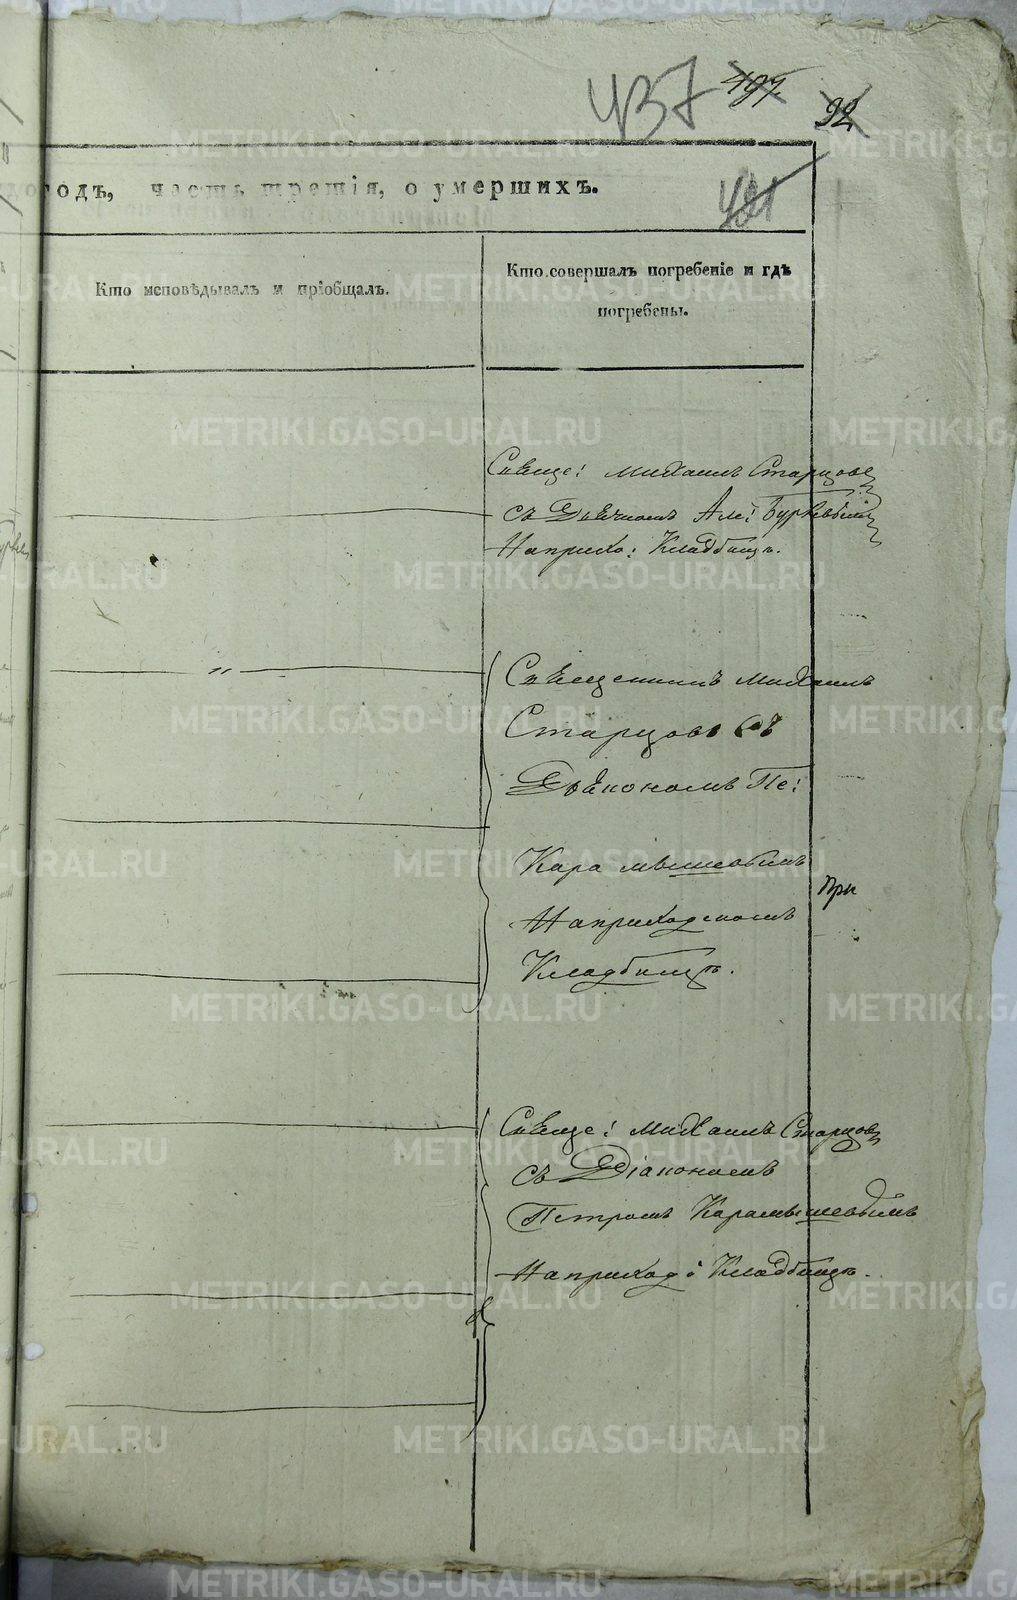 437 497. 92
догодъ, часть третія, о умершихъ.
421
Кто исповѣдывалъ и пріобщалъ.
Кто совершалъ погребеніе и гдѣ
погребены.
Свяще: Михаилъ Старцовъ
съ Дьячкомъ Але:
На прихо: Кладбищѣ.
Священникъ Михаилъ
Старцовъ съ
Дьякономъ Пе:
Карамышевымъ
На приходскомъ
при
Кладбищѣ.
Свяще: Михаилъ Старцовъ
съ Діакономъ
Петромъ Карамышевымъ
На приход: Кладбищѣ.
METRIKI.GASO-URAL.RU